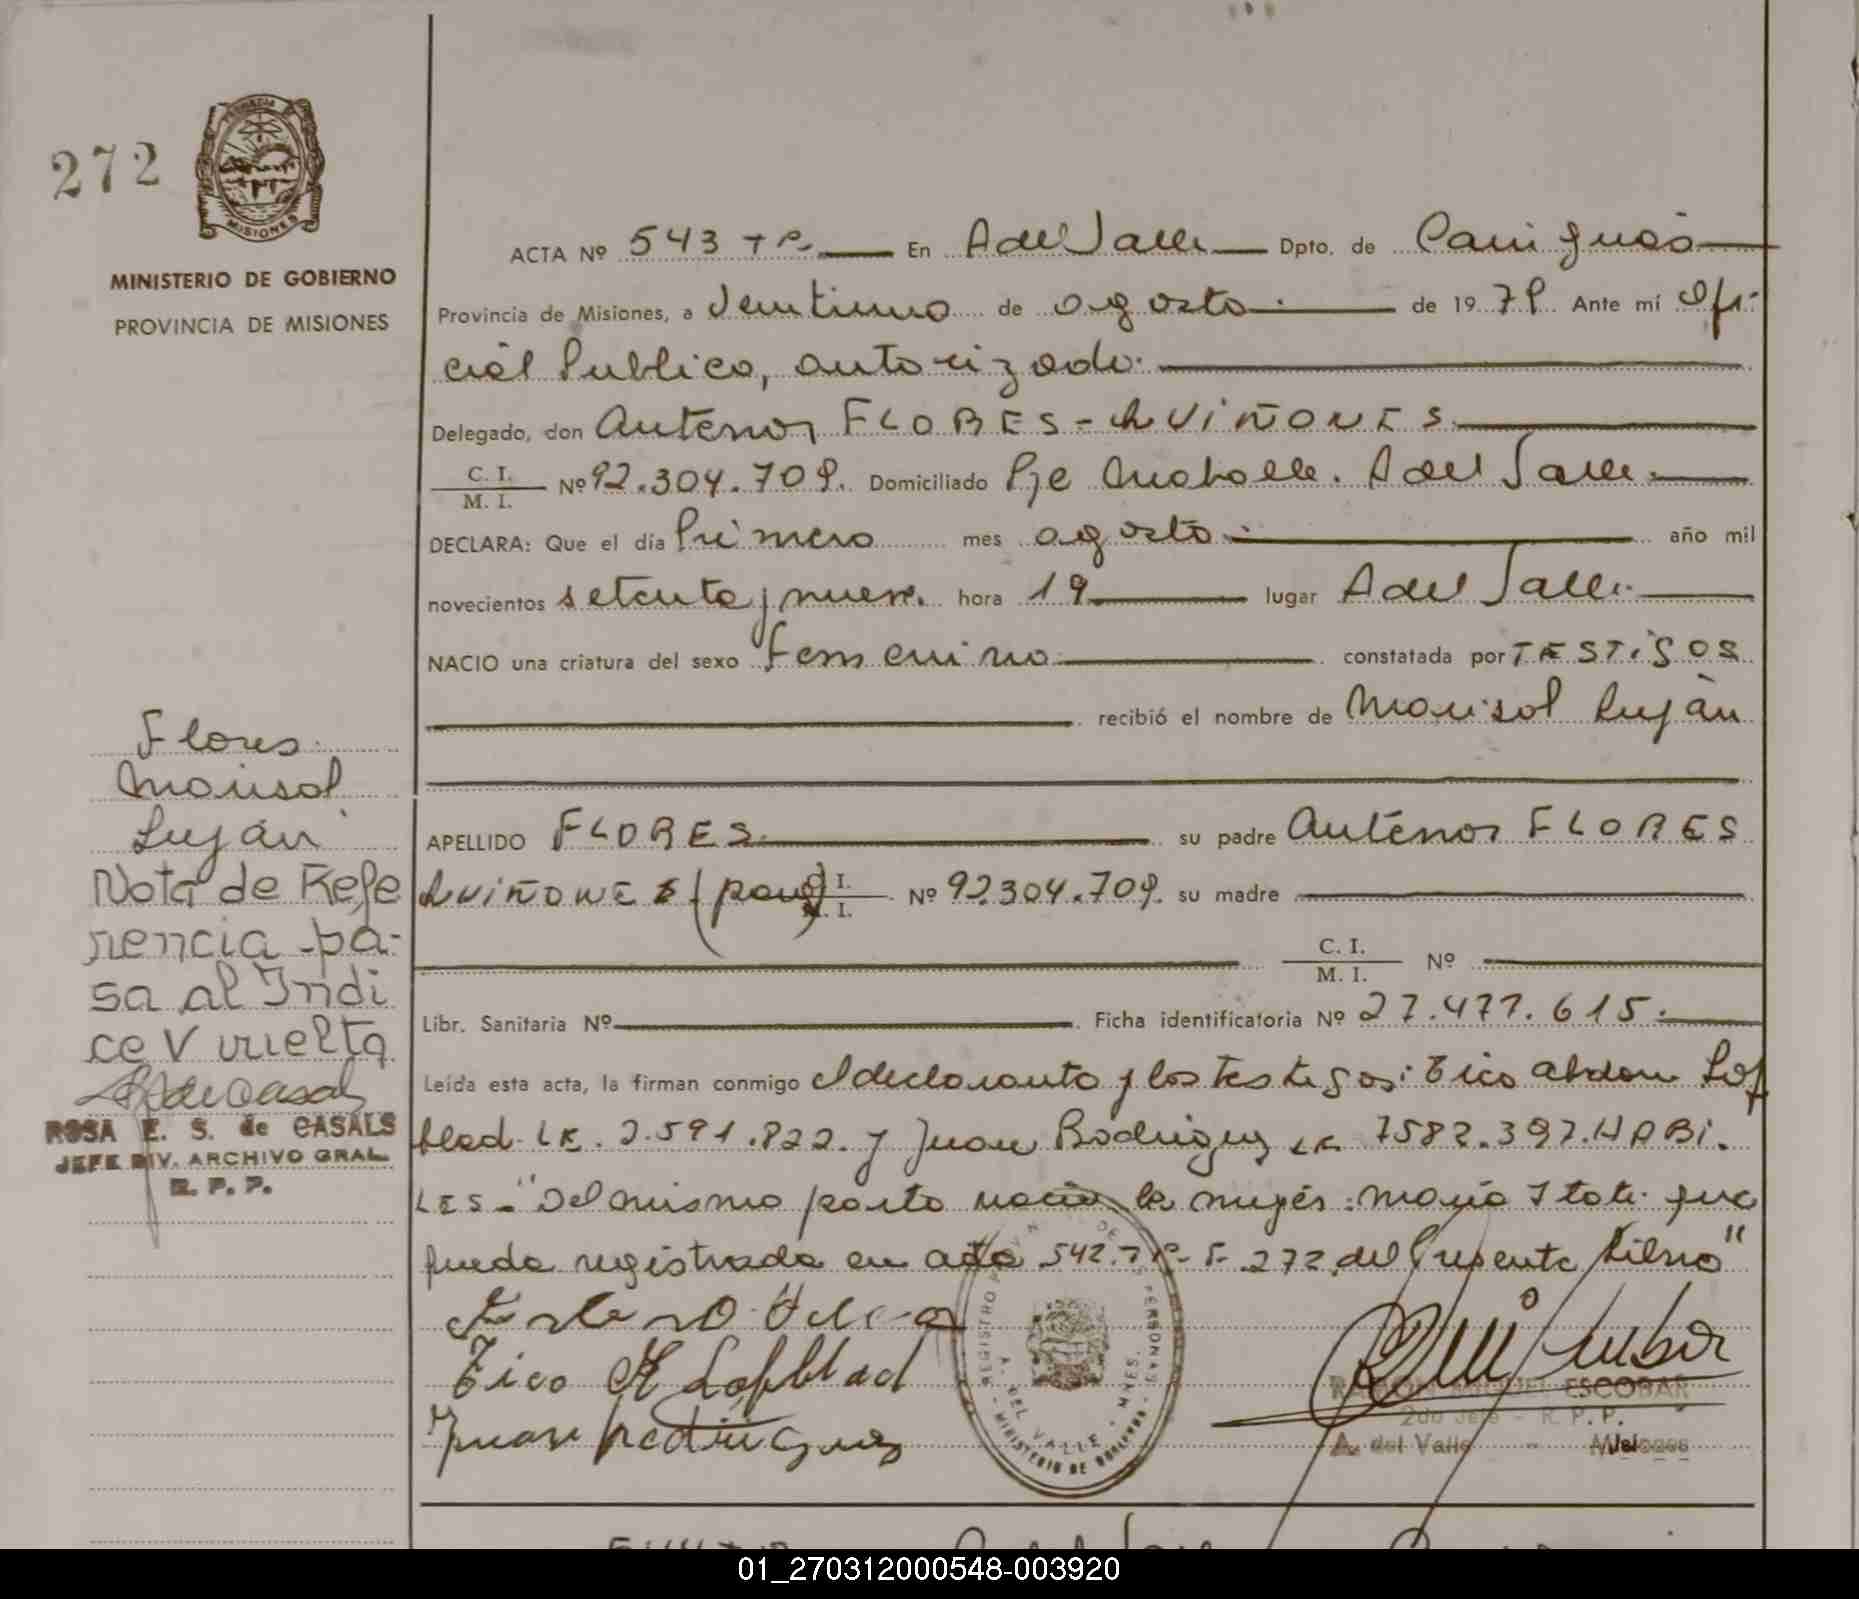 272
MISIONES
MINISTERIO DE GOBIERNO
PROVINCIA DE MISIONES
ACTA Nº 543 TP. En A del Valle Dpto. de Cainguás
Provincia de Misiones, a veintiuno de agosto. de 19 79. Ante mí Ofi-
cial Publico, autorizado.
Delegado, don Antenor FLORES - QUIÑONES
C. I. / M. I. Nº 92.304.709. Domiciliado Pje A del Valle.
DECLARA: Que el día Primero mes agosto. año mil
novecientos setenta y nueve. hora 19 lugar A del Valle.
NACIO una criatura del sexo femenino constatada por TESTIGOS
recibió el nombre de Marisol Luján
APELLIDO FLORES su padre Anténor FLORES
QUIÑONES (parag) C. I. / M. I. Nº 92.304.709. su madre
C. I. / M. I. Nº
Libr. Sanitaria Nº Ficha identificatoria Nº 27.477.615.
Leída esta acta, la firman conmigo el declarante y los testigos: Tico Abdon Lof
blad. LE. 2.591.822. y Juan Rodriguez LE 7582.397. HABI.
LES. "Del mismo parto nació la mujer: María Itatí. que
queda registrada en acta 542. TP. F. 272. del Presente Libro"
Tico A Lofblad
Juan Rodriguez
Flores
Marisol
Luján
Nota de Refe
rencia pa-
sa al Indi
ce Vuelta
ROSA E. S. de CASALS
JEFE DIV. ARCHIVO GRAL.
R. P. P.
REGISTRO PROVINCIAL DE LAS PERSONAS
A. DEL VALLE - MNES.
MINISTERIO DE GOBIERNO
RAMON MIGUEL ESCOBAR
2do Jefe - R. P. P.
A. del Valle - Misiones
01_270312000548-003920